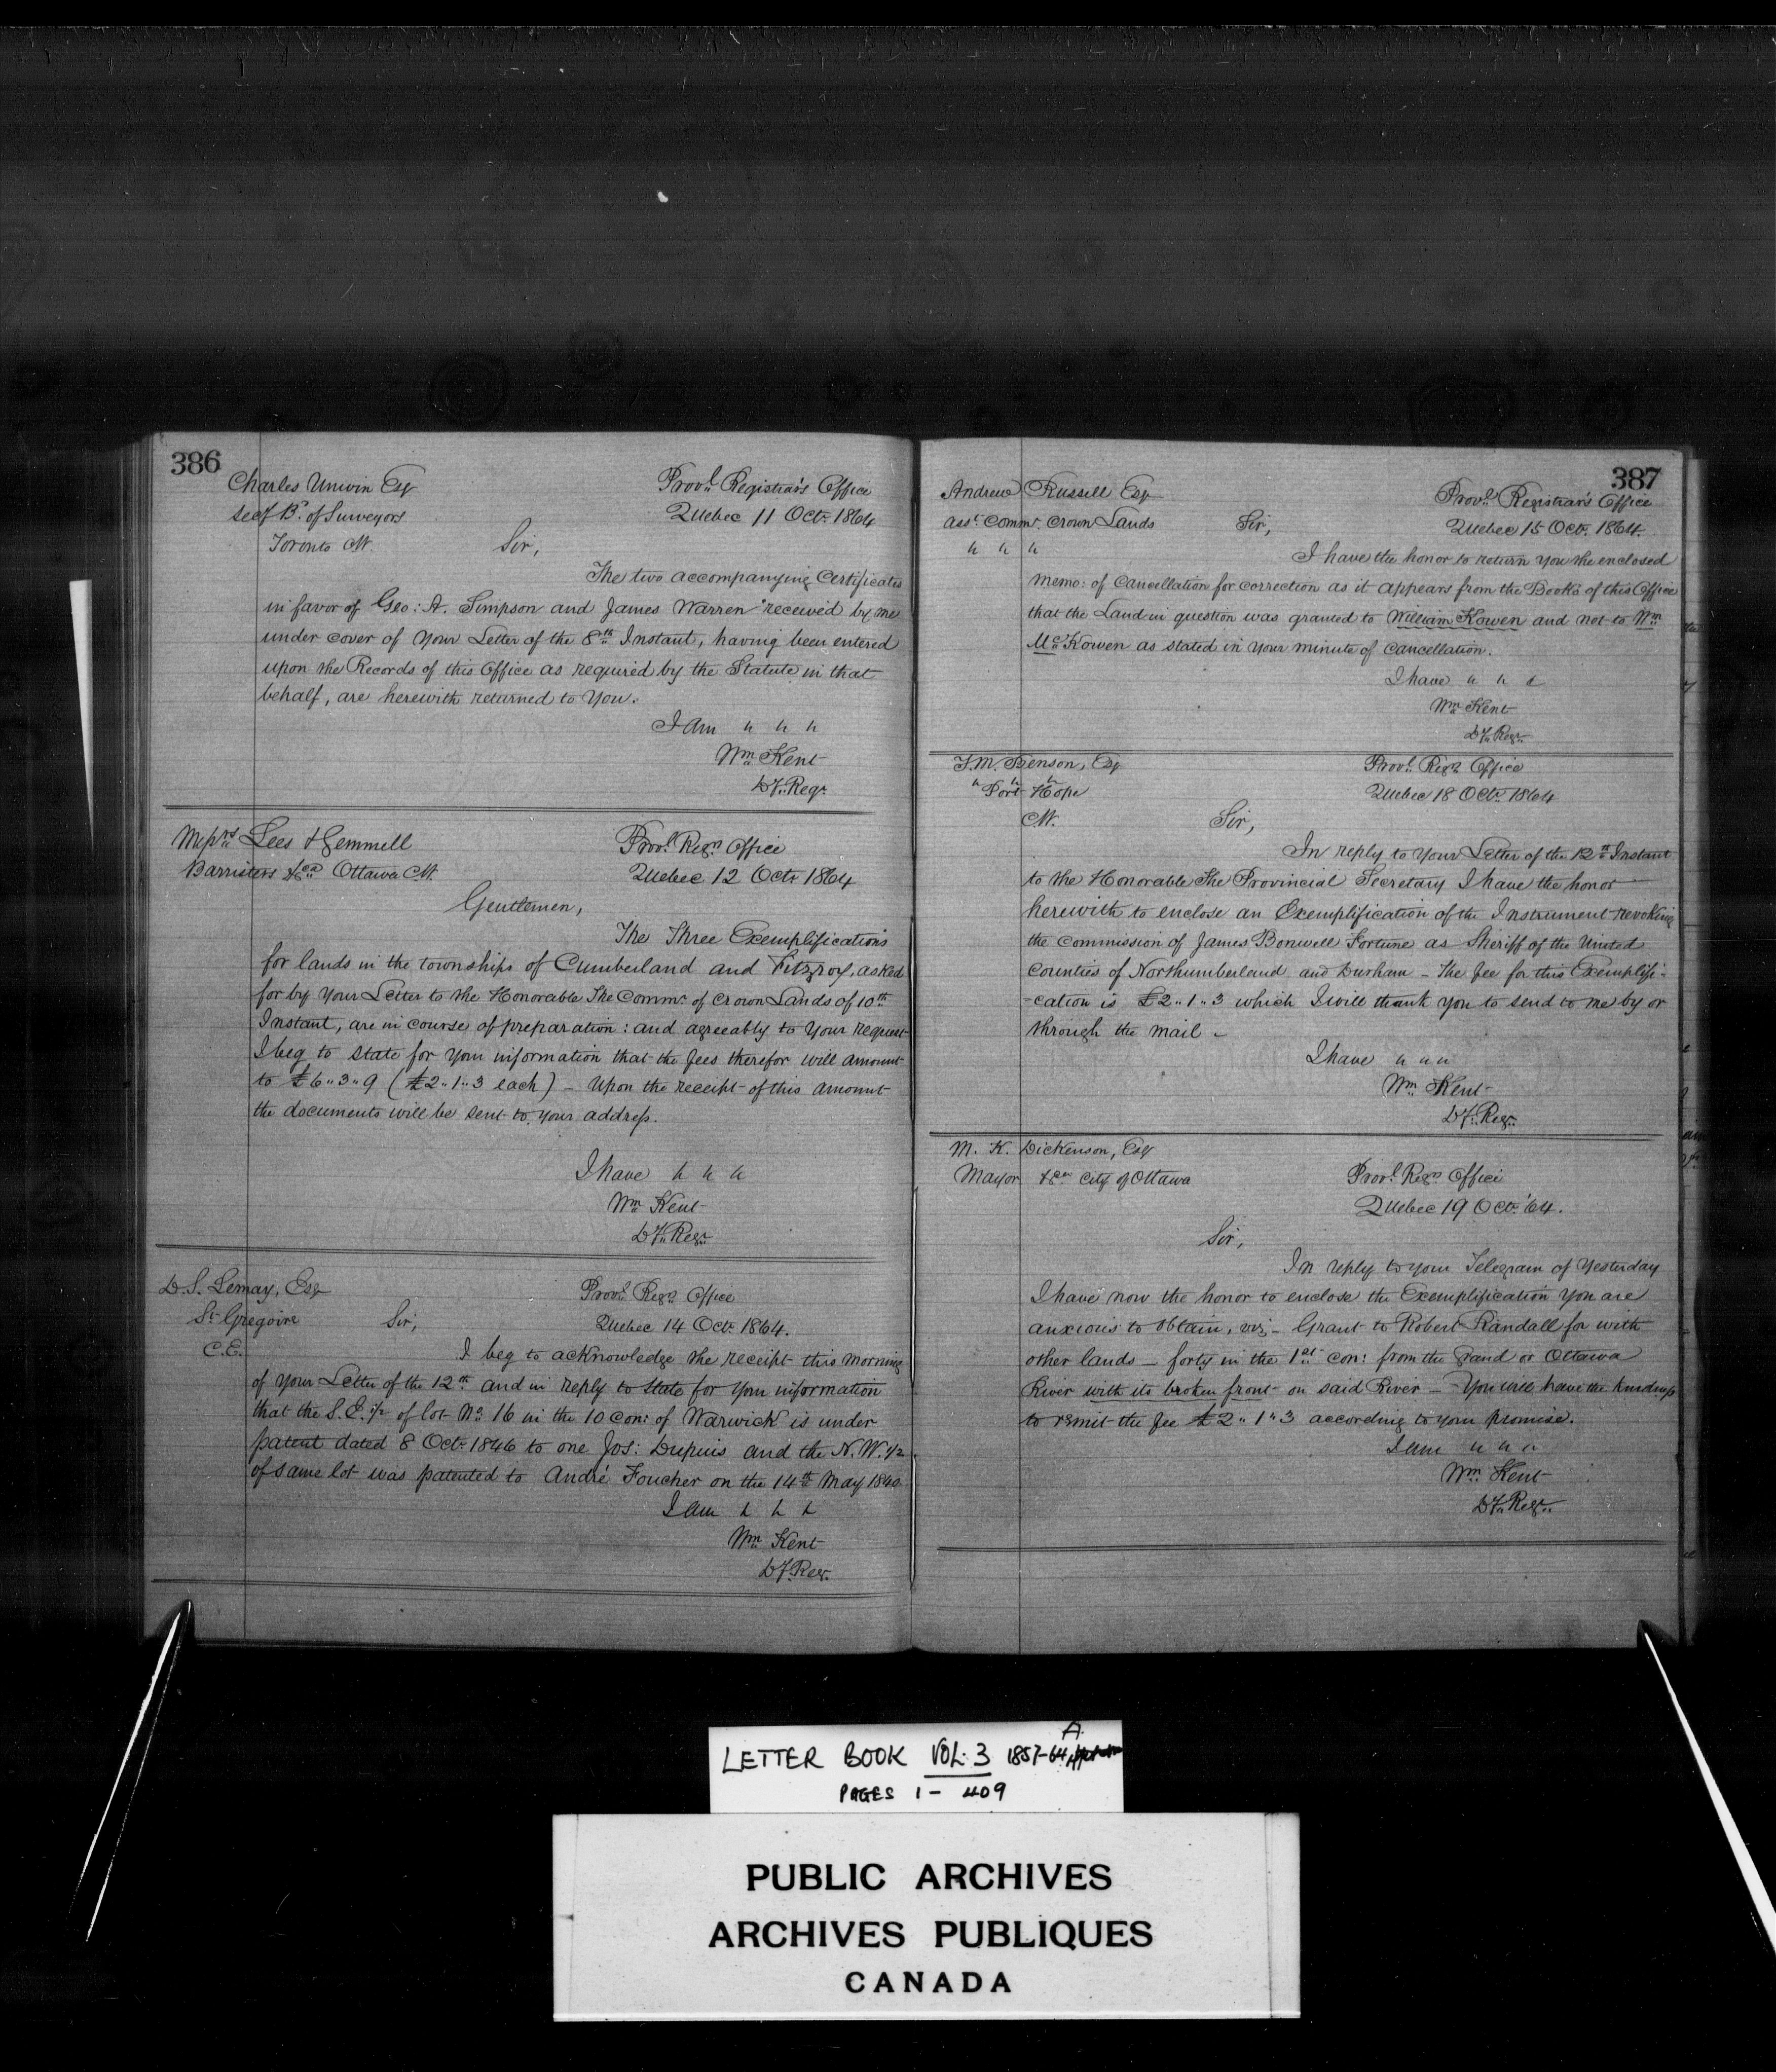 386
Charles Unwin Esq
Provl. Registrar's Office
Secy Bd. of Surveyors
Quebec 11 Octr. 1864
Toronto CW.
Sir,
The two accompanying Certificates
in favor of Geo: A. Simpson and James Warren received by me
under cover of your Letter of the 8th Instant, having been entered
upon the Records of this Office as required by the Statute in that
behalf, are herewith returned to You.
I am " " "
Wm Kent
Dy. Regr.
Messrs Lees & Gemmell
Provl. Regrs Office
Barristers &ca Ottawa CW.
Quebec 12 Octr 1864
Gentlemen,
The Three Exemplifications
for lands in the townships of Cumberland and Fitzroy, asked
for by Your Letter to the Honorable The Commr. of Crown Lands of 10th
Instant, are in course of preparation: and agreeably to Your Request
I beg to state for your information that the fees therefor will amount
to £6"3"9 (£2"1"3 each) – Upon the receipt of this amount
the documents will be sent to your address.
I have " " "
Wm Kent
Dy. Regr.
D. S. Lemay, Esq
Provl. Regrs Office
St Gregoire
Sir,
Quebec 14 Octr 1864.
C.E.
I beg to acknowledge the receipt this morning
of your Letter of the 12th and in reply to state for your information
that the S.E. ½ of lot No 16 in the 10 con: of Warwick is under
patent dated 8 Octr 1846 to one Jos: Dupuis and the N.W. ½
of same lot was patented to André Foucher on the 14th May 1840
I am " " "
Wm Kent
Dy. Regr.
387
Andrew Russell Esq
Provl. Registrar's Office
Asst. Commr. Crown Lands
Sir,
Quebec 15 Octr. 1864.
" " "
I have the honor to return you the enclosed
Memo: of Cancellation for correction as it appears from the Books of this Office
that the Land in question was granted to William Kowen and not to Wm
Mc Kowen as stated in your minute of Cancellation.
I have " " &
Wm Kent
Dy. Regr.
T. M. Benson, Esq
Provl. Regrs Office
" " "
Port Hope
Quebec 18 Octr 1864
CW.
Sir,
In reply to Your Letter of the 12th Instant
to the Honorable The Provincial Secretary I have the honor
herewith to enclose an Exemplification of the Instrument revoking
the Commission of James Bonwell Fortune as Sheriff of the United
Counties of Northumberland and Durham – The fee for this Exemplifi-
-cation is £2"1"3 which I will thank you to send to me by or
through the mail –
I have " " "
Wm Kent
Dy. Regr.
M. K. Dickenson, Esq
Mayor &ca City of Ottawa
Provl. Regrs Office
Quebec 19 Octr. '64.
Sir,
In reply to your Telegram of Yesterday
I have now the honor to enclose the Exemplification You are
anxious to obtain, viz – Grant to Robert Randall for with
other lands – forty in the 1st con: from the Grand or Ottawa
River with its broken front on said River – You will have the kindness
to remit the fee £2"1"3 according to your promise.
I am " " "
Wm Kent
Dy. Regr.
LETTER BOOK VOL. 3 1857-64 A
PAGES 1 – 409
PUBLIC ARCHIVES
ARCHIVES PUBLIQUES
CANADA